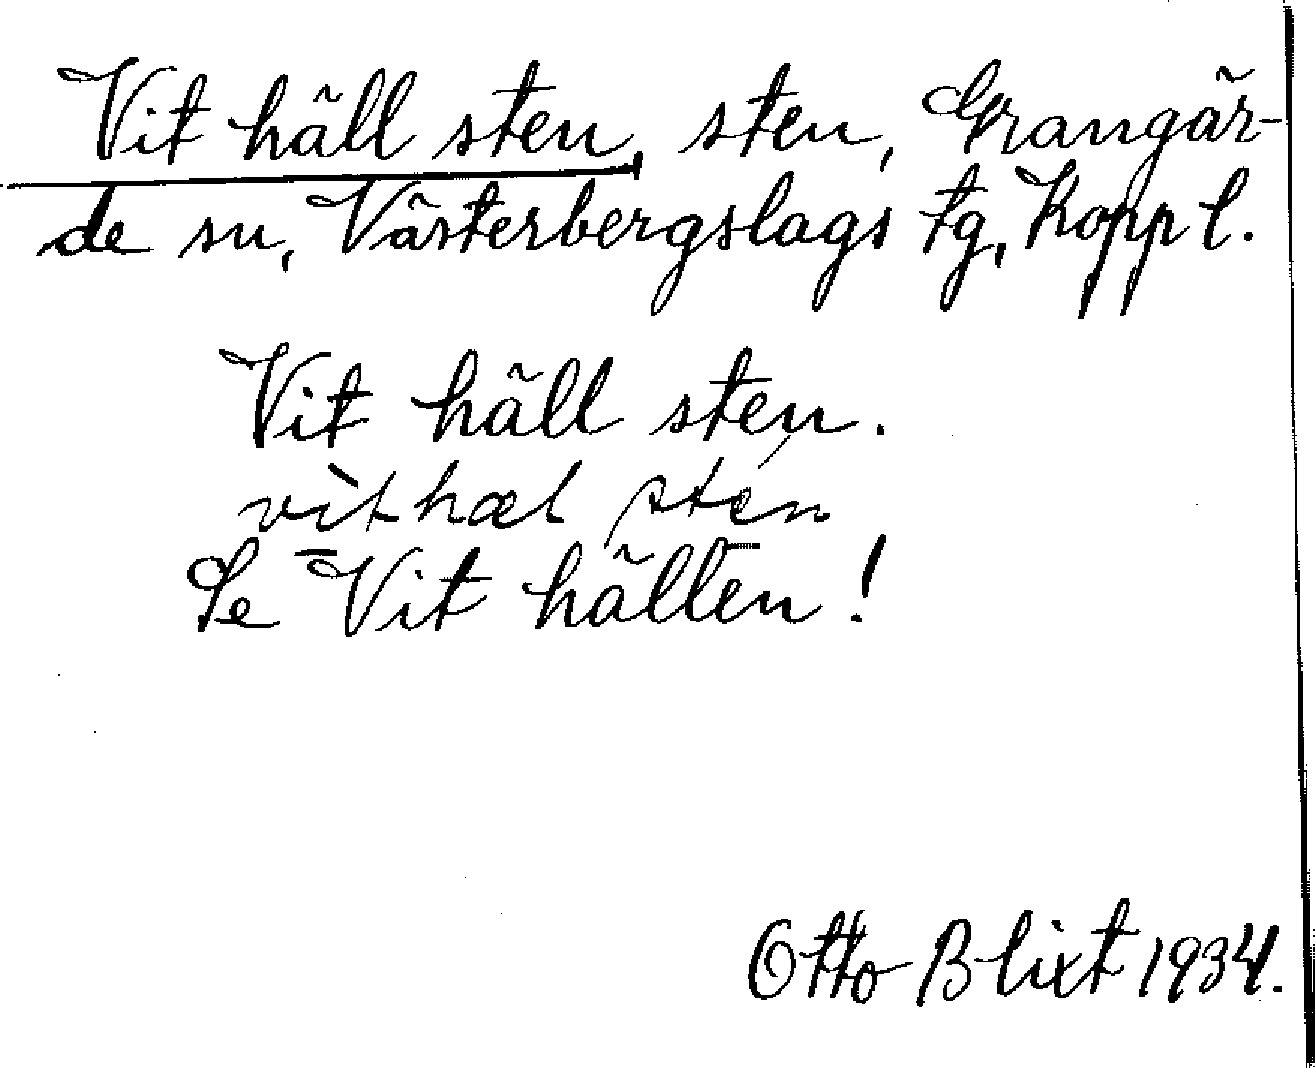 Vit häll sten, sten, Grangär-
de sn, Västerbergslags tg, Kopp l.
Vit häll sten.
vìthæl stén
Se Vit hällen!
Otto Blixt 1934.